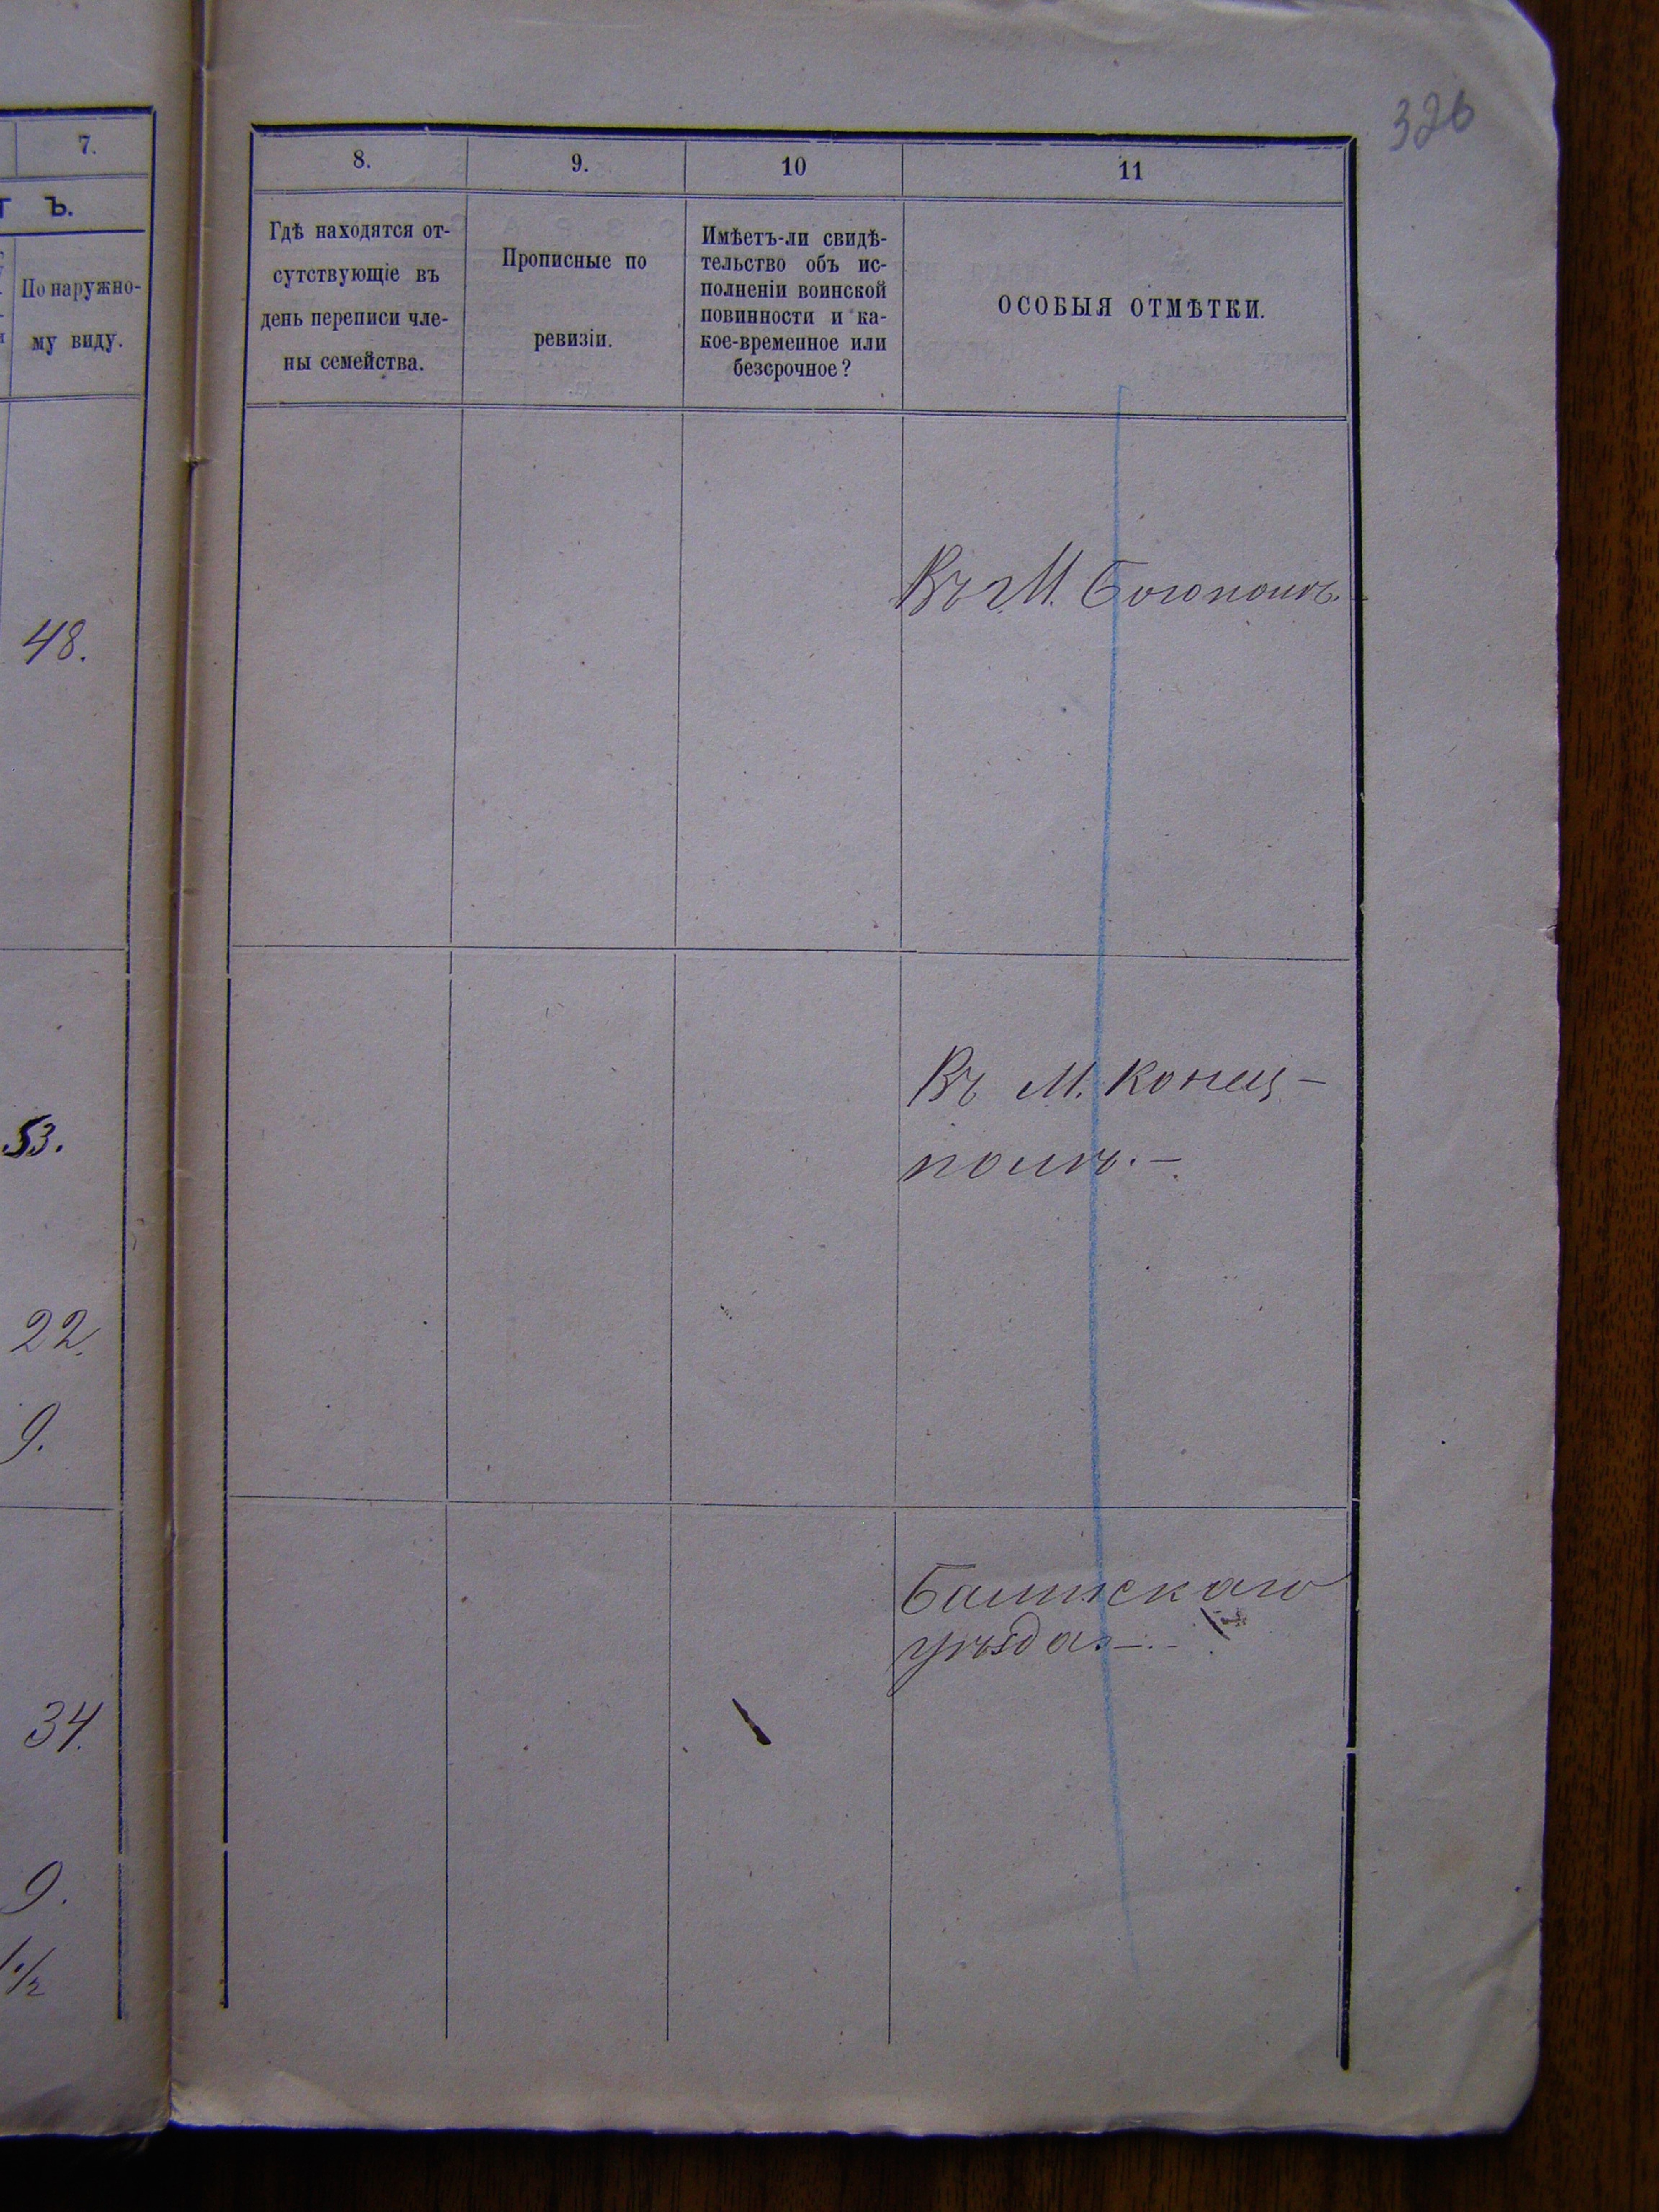 326
7.
Ъ.
По наружно-
му виду.
48.
53.
22.
9.
34.
9.
1 1/2
8.
9.
10
11
Гдѣ находятся от-
сутствующіе въ
день переписи чле-
ны семейства.
Прописные по
ревизіи.
Имѣетъ-ли свидѣ-
тельство объ ис-
полненіи воинской
повинности и ка-
кое-временное или
безсрочное?
ОСОБЫЯ ОТМѢТКИ.
Въ М. Богополѣ.
Въ М. Конец-
полѣ. –
Балтскаго
уѣзда. –